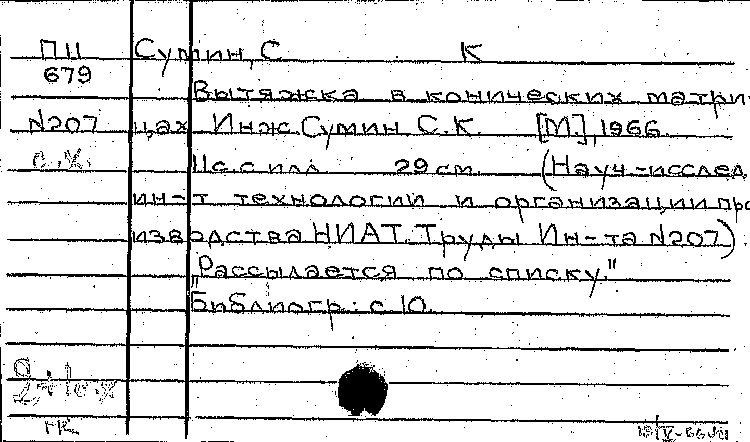 П11 Сумин, С К
679
Вытяжка в конических матри-
N207 цах Инж. Сумин С.К. [М.], 1966.
с.х. 11с. с илл. 29 см. (Науч.-исслед.
ин-т технологии и организации про
изводства НИАТ. Труды Ин-та N207).
"Рассылается по списку."
Библиогр.: с 10.
2+1с.х